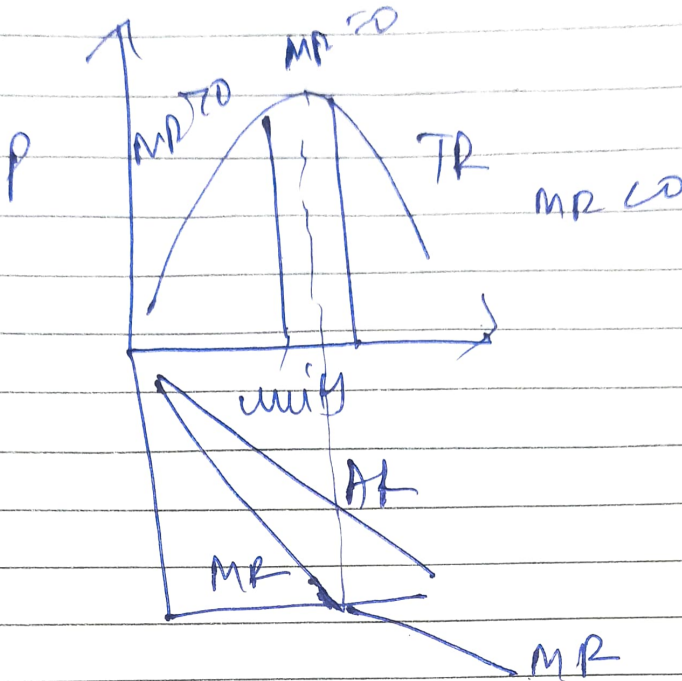 MR=0
MR>0
P
TR
MR<0
units
AR
MR
MR